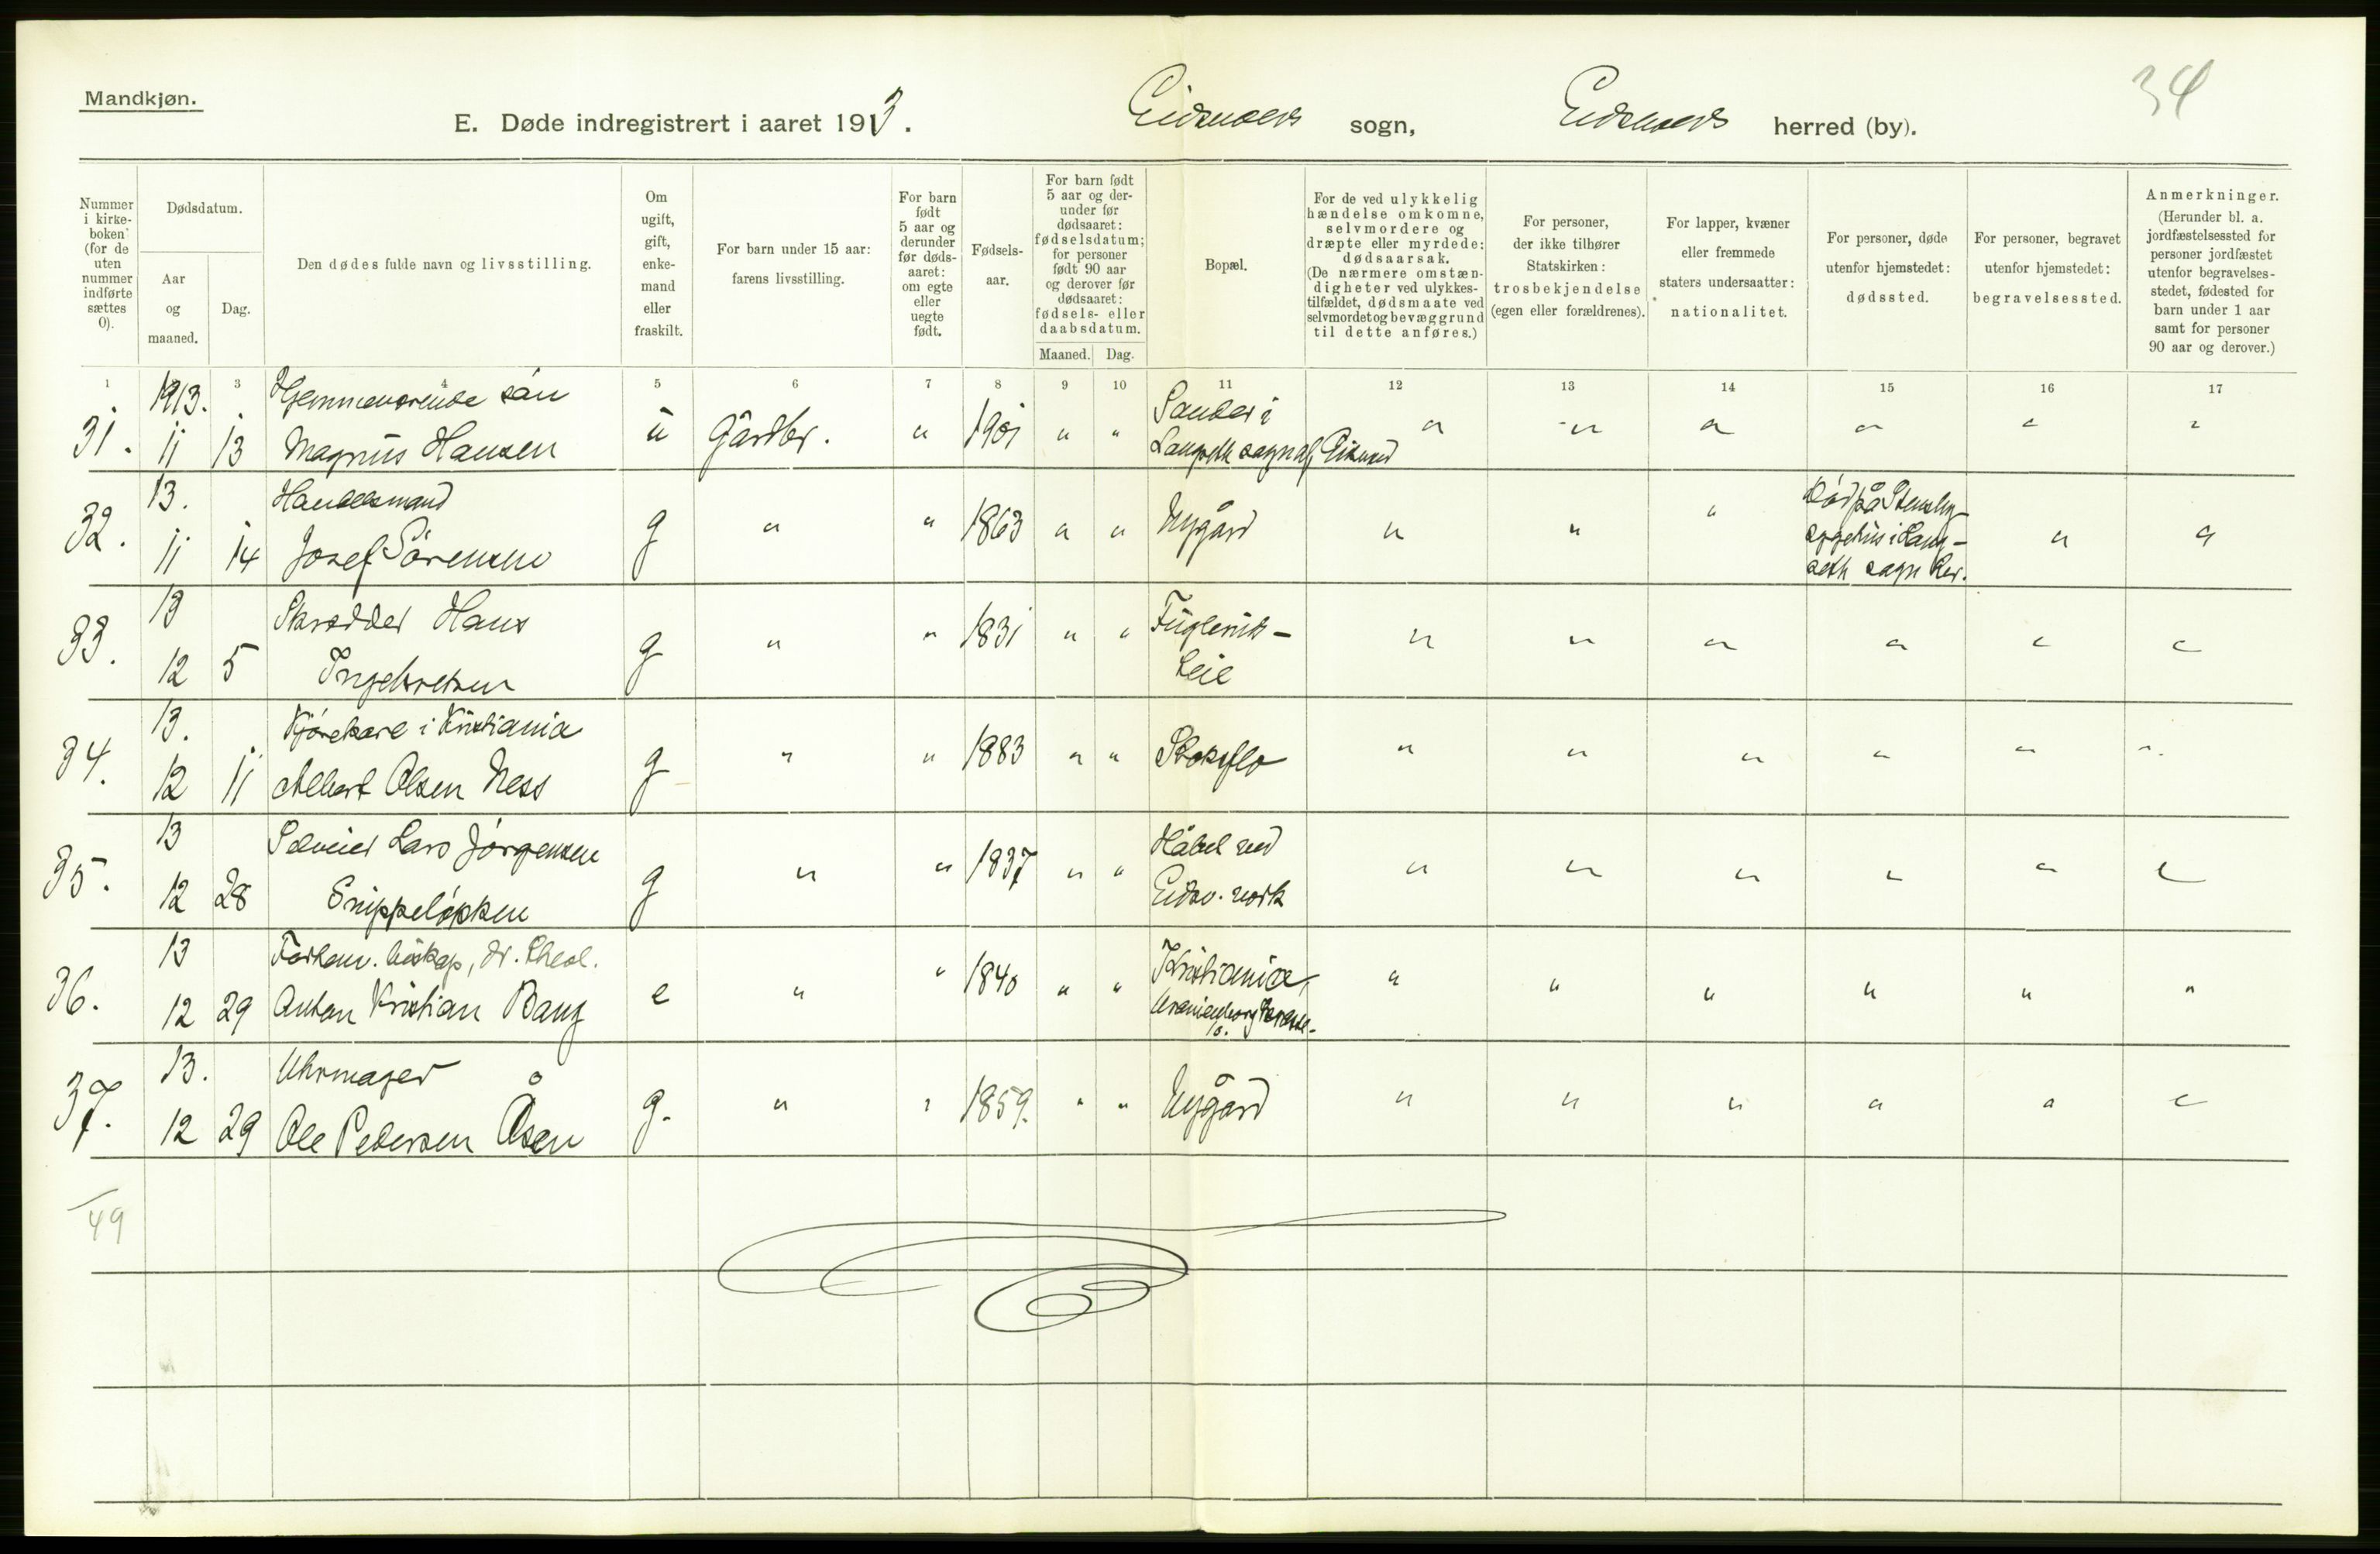 Mandkjøn.
34
E. Døde indregistrert i aaret 1913. Eidsvolds sogn, Eidsvolds herred (by).
Nummer i kirke-boken (for de uten nummer indførte sættes 0).
Dødsdatum.
Aar og maaned.
Dag.
Den dødes fulde navn og livsstilling.
Om ugift, gift, enke-mand eller fraskilt.
For barn under 15 aar: farens livsstilling.
For barn født 5 aar og derunder før døds-aaret: om egte eller uegte født.
Fødsels-aar.
For barn født 5 aar og der-under før dødsaaret: fødselsdatum; for personer født 90 aar og derover før dødsaaret: fødsels- eller daabsdatum.
Maaned. Dag.
Bopæl.
For de ved ulykkelig hændelse omkomne, selvmordere og dræpte eller myrdede: dødsaarsak. (De nærmere omstæn-digheter ved ulykkes-tilfældet, dødsmaate ved selvmordet og bevæggrund til dette anføres.)
For personer, der ikke tilhører Statskirken: trosbekjendelse (egen eller forældrenes).
For lapper, kvæner eller fremmede staters undersaatter: nationalitet.
For personer, døde utenfor hjemstedet: dødssted.
For personer, begravet utenfor hjemstedet: begravelsessted.
Anmerkninger. (Herunder bl. a. jordfæstelsessted for personer jordfæstet utenfor begravelses-stedet, fødested for barn under 1 aar samt for personer 90 aar og derover.)
1 3 4 5 6 7 8 9 10 11 12 13 14 15 16 17
1913. Hjemmeværende sön Sander i
31. 11 13 Magnus Hansen u Gårdbr. " 1901 " " Langseth sogn af Eidsvold " " " " " "
13. Handelsmand Död på Stensby-
32. 11 14 Josef Sörensen g " " 1863 " " Nygård " " " sygehus i Lang- " "
seth sogn her.
13 Skrædder Hans Fuglenik-
33. 12 5 Ingebretsen g " " 1831 " " Eie " " " " " "
13. Kjörekarl i Kristiania
34. 12 11 Albert Olsen Ness g " " 1883 " " Stokflo " " " " " "
13 Selveier Lars Jörgensen Håbel ved
35. 12 28 Snippelökken g " " 1837 " " Eidsv. verk " " " " " "
13 Forhenv. biskop, dr. theol. Kristiania,
36. 12 29 Anton Kristian Bang e " " 1840 " " Uranienborg Terasse " " " " " "
13. Uhrmager
37. 12 29 Ole Pedersen Åsen g. " " 1859. " " Nygård " " " " " "
49